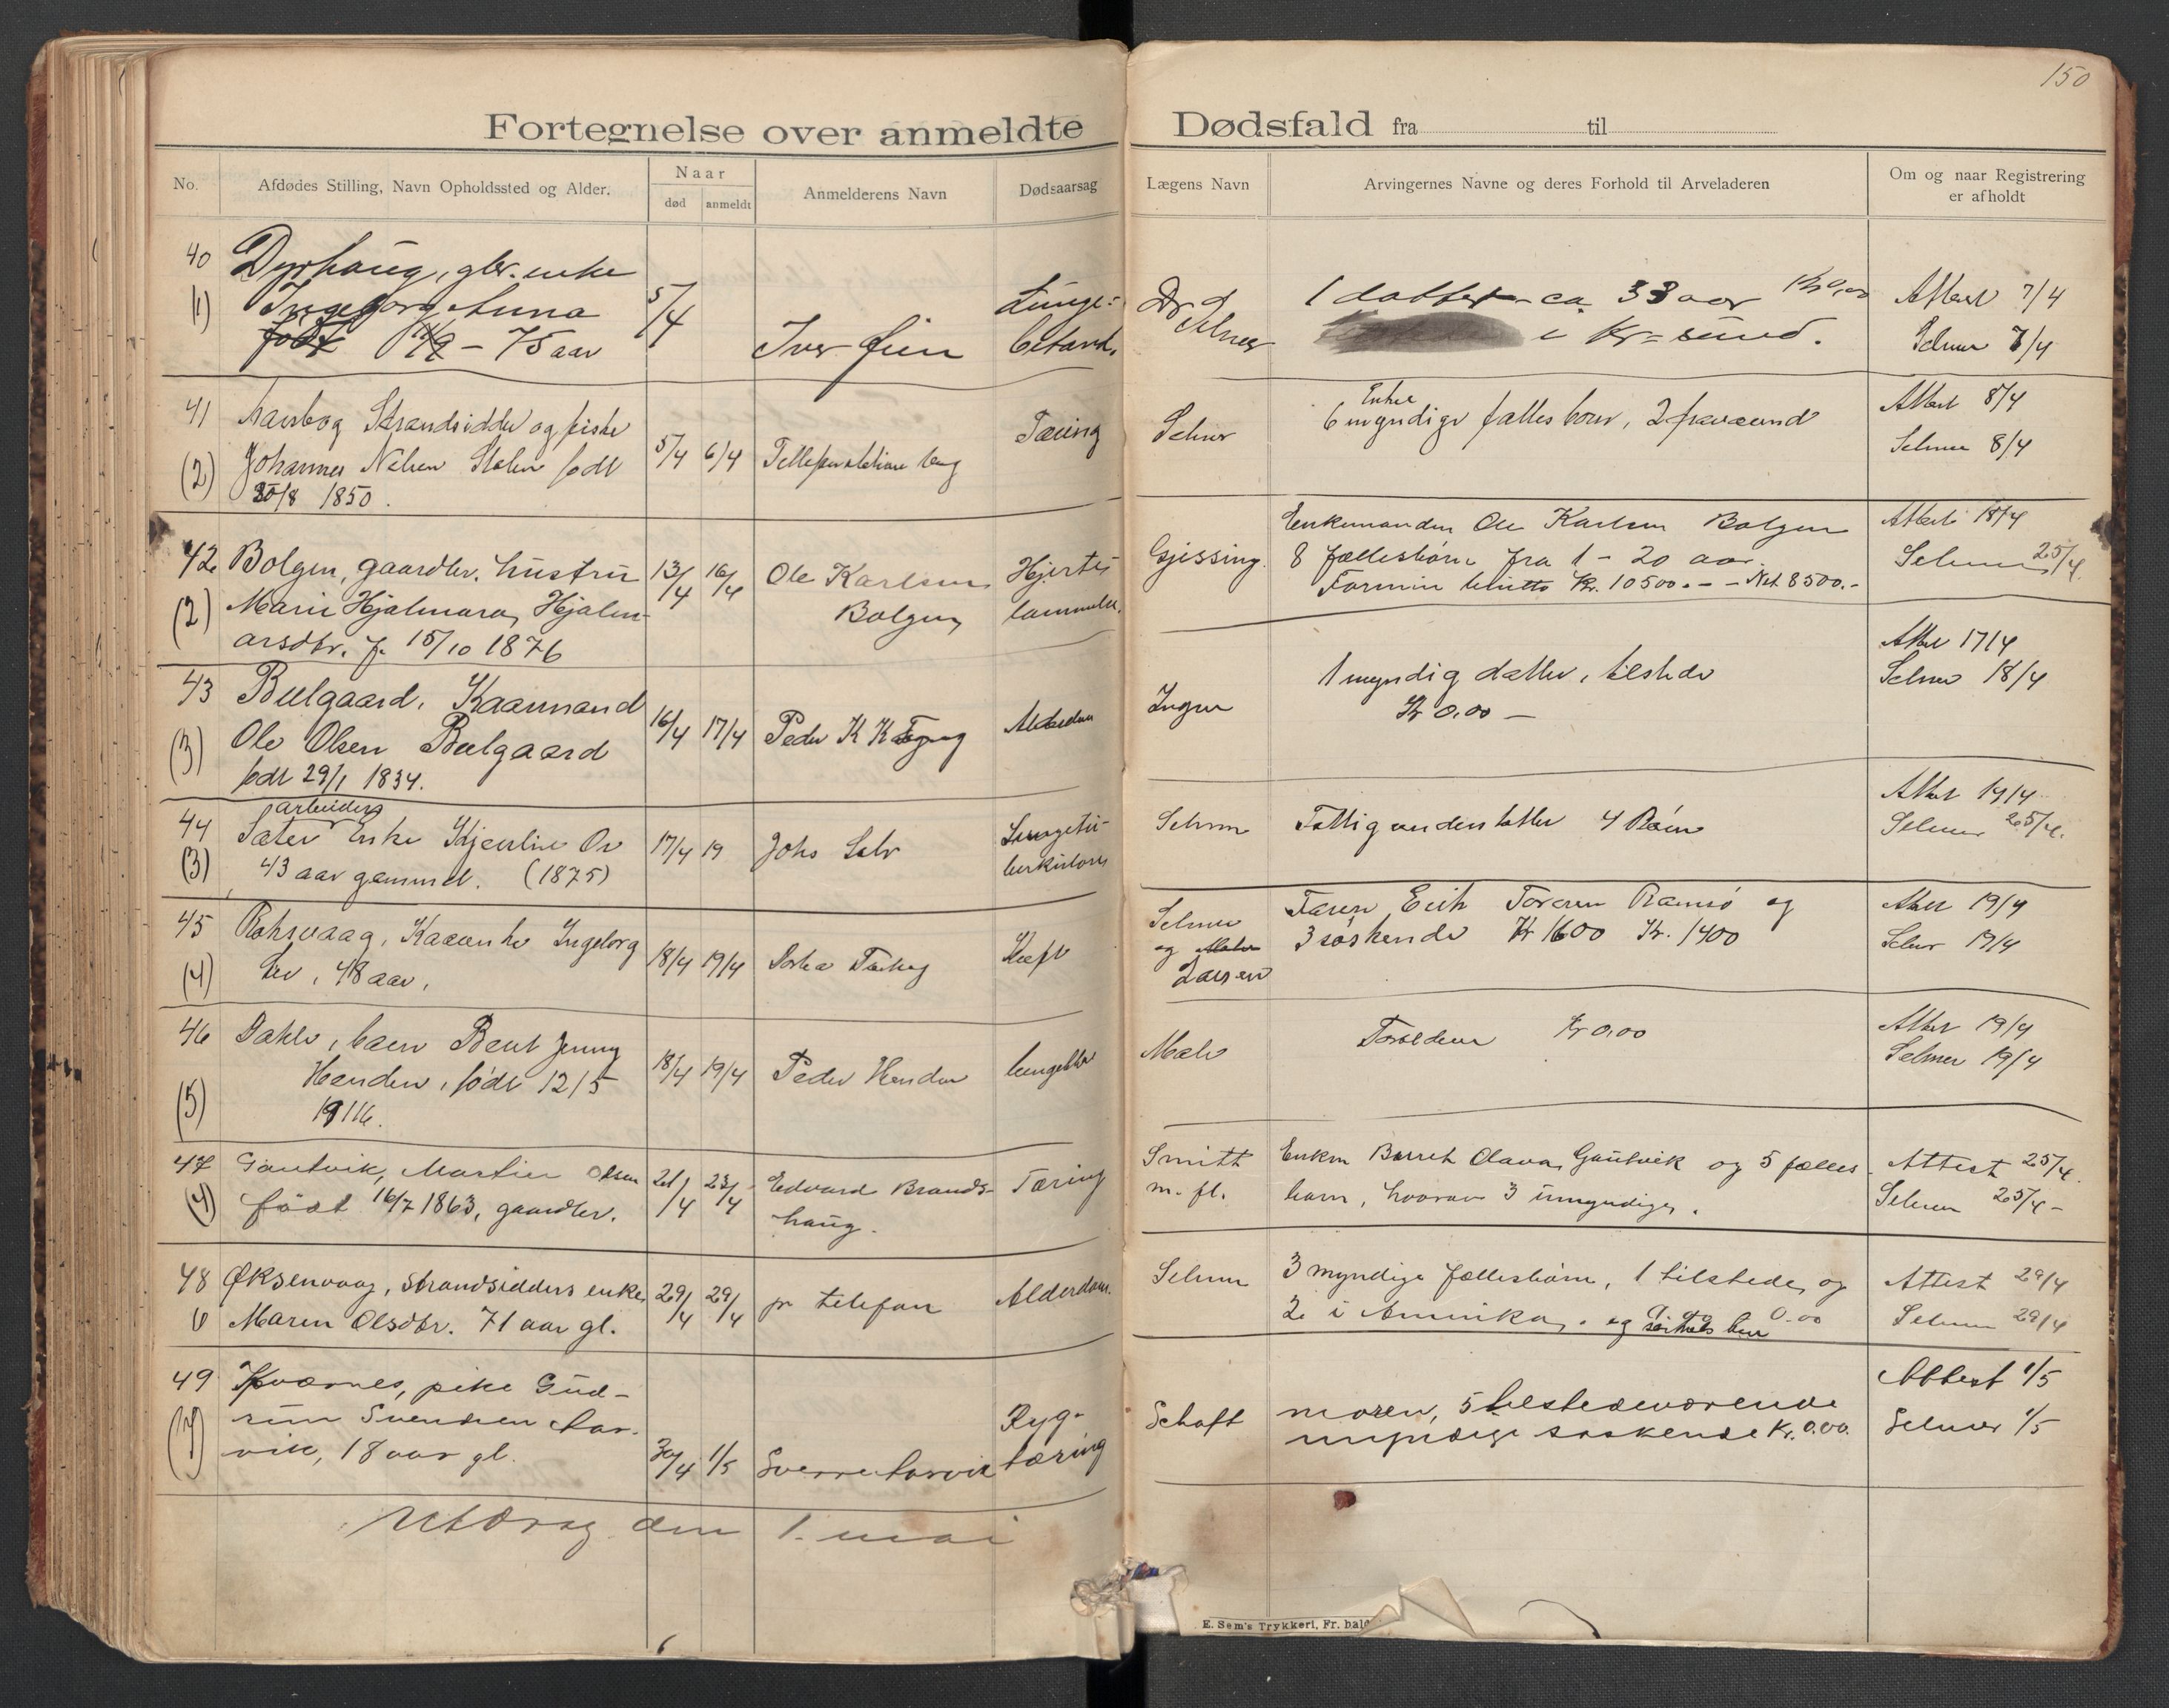 150
Fortegnelse over anmeldte Dødsfald fra til
No.
Afdødes Stilling, Navn Opholdssted og Alder.
Naar
død
anmeldt
Anmelderens Navn
Dødsaarsag
Lægens Navn
Arvingernes Navne og deres Forhold til Arveladeren
Om og naar Registrering
er afholdt
40
(1)
Dyrhaug, gbr. enke
Ingeborg Anna
født 75 aar
5/4
Iver
Lunge-
betænd.
Dr
1 datter ca 33 aar Kr 0,00
i Kr-sund.
Attest 7/4
Selmer 7/4
41
(2)
Strandsidder og fisker
Johannes Nilsen født
/8 1850.
5/4
6/4
Tæring
Selmer
Enke
6 myndige fælles børn, 2 fraværend
Attest 8/4
Selmer 8/4
42
(2)
Bolgen, gaardbr. hustru
Marie Hjalmara Hjalm-
arsdtr. f. 15/10 1876
13/4
16/4
Ole Karlsen
Bolgen
Hjerte
lammelse.
Gjessing.
Enkemanden Ole Karlsen Bolgen
8 fællesbørn fra 1 - 20 aar.
Formue brutto Kr. 10500.- - Net. 8500.-
Attest 18/4
Selmer 25/4.
43
(3)
Bælgaard, Kaarmand
Ole Olsen Bælgaard
født 29/1 1834.
16/4
17/4
Peder K
Alderdom
1 myndig datter, tilstede
Kr 0.00 -
Attest 17/4
Selmer 18/4
44
(3)
arbeiders
Enke
43 aar gammel. (1875)
17/4
19
Johs
Lungetu-
berkulose
Selmer
Fattigunderstøttet 4 Børn
Attest 19/4
Selmer 25/4.
45
(4)
Ingeborg
48 aar,
18/4
19/4
Kræft
Selmer
og
Larsen
Faren Erik Ramsø og
3 søskende Kr 1600 Kr. 1400
Attest 19/4
Selmer 19/4
46
(5)
Dahle, barn Bent Jenny
Henden, født 12/5
1916.
18/4
19/4
Peder Henden
Forældrene Kr 0.00
Attest 19/4
Selmer 19/4
47
(4)
Gautvik, Martin Olsen
født 16/7 1863, gaardbr.
21/4
23/4
Edvard Brands-
haug.
Tæring
Smitt
m. fl.
Enken Berret Olava Gautvik og 5 fælles
barn, hvorav 3 umyndige.
Attest 25/4.
Selmer 25/4 -
48
Øksenvaag, strandsidders enke
Maren Olsdtr. 71 aar gl.
29/4
29/4
pr telefon
Alderdom.
Selmer
3 myndige fællesbørn, 1 tilstede og
2 i Amerika. og 0.00
Attest 29/4
Selmer 29/4
49
Kvernes, pike Gud-
run Svendsen
18 aar gl.
30/4
1/5
Sverre
Ryg-
tæring
Schøft
moren, 5 tilstedeværende
myndige søskende Kr. 0.00.
Attest 1/5
Selmer 1/5
Utdrag den 1. mai
E. Sem's Trykkeri, Fr. hald